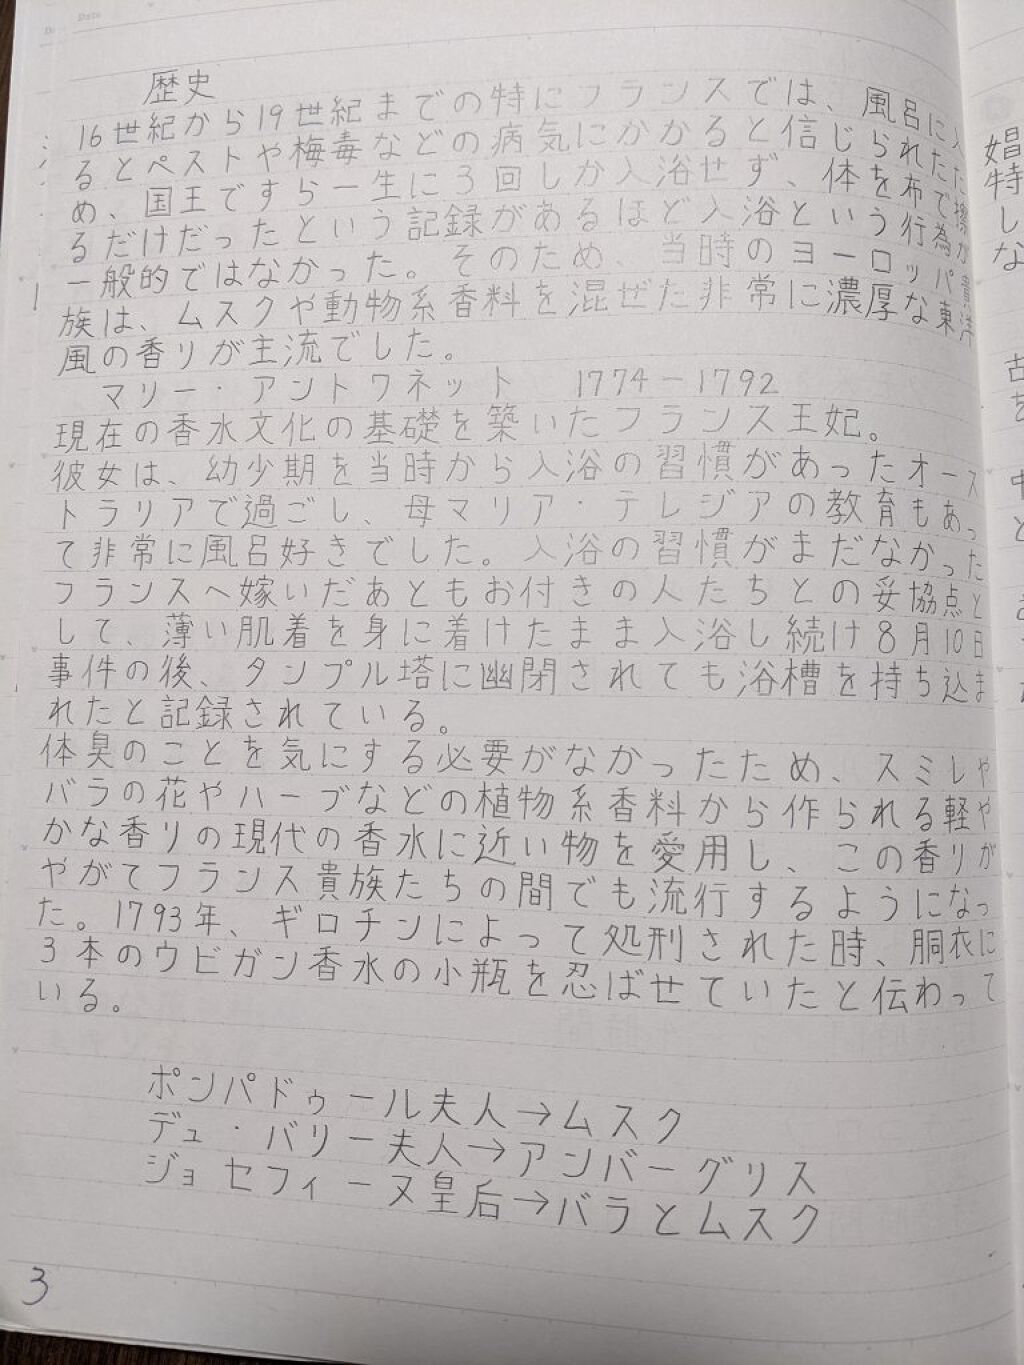 歴史
16世紀から19世紀までの特にフランスでは、風呂に入
るとペストや梅毒などの病気にかかると信じられたた
め、国王ですら一生に3回しか入浴せず、体を布で擦
るだけだったという記録があるほど入浴という行為が
一般的ではなかった。そのため、当時のヨーロッパ貴
族は、ムスクや動物系香料を混ぜた非常に濃厚な東洋
風の香りが主流でした。
マリー・アントワネット 1774-1792
現在の香水文化の基礎を築いたフランス王妃。
彼女は、幼少期を当時から入浴の習慣があったオース
トラリアで過ごし、母マリア・テレジアの教育もあっ
て非常に風呂好きでした。入浴の習慣がまだなかった
フランスへ嫁いだあともお付きの人たちとの妥協点と
して、薄い肌着を身に着けたまま入浴し続け8月10日
事件の後、タンプル塔に幽閉されても浴槽を持ち込ま
れたと記録されている。
体臭のことを気にする必要がなかったため、スミレや
バラの花やハーブなどの植物系香料から作られる軽や
かな香りの現代の香水に近い物を愛用し、この香りが
やがてフランス貴族たちの間でも流行するようになっ
た。1793年、ギロチンによって処刑された時、胴衣に
3本のウビガン香水の小瓶を忍ばせていたと伝わって
いる。
ポンパドゥール夫人→ムスク
デュ・バリー夫人→アンバーグリス
ジョセフィーヌ皇后→バラとムスク
3